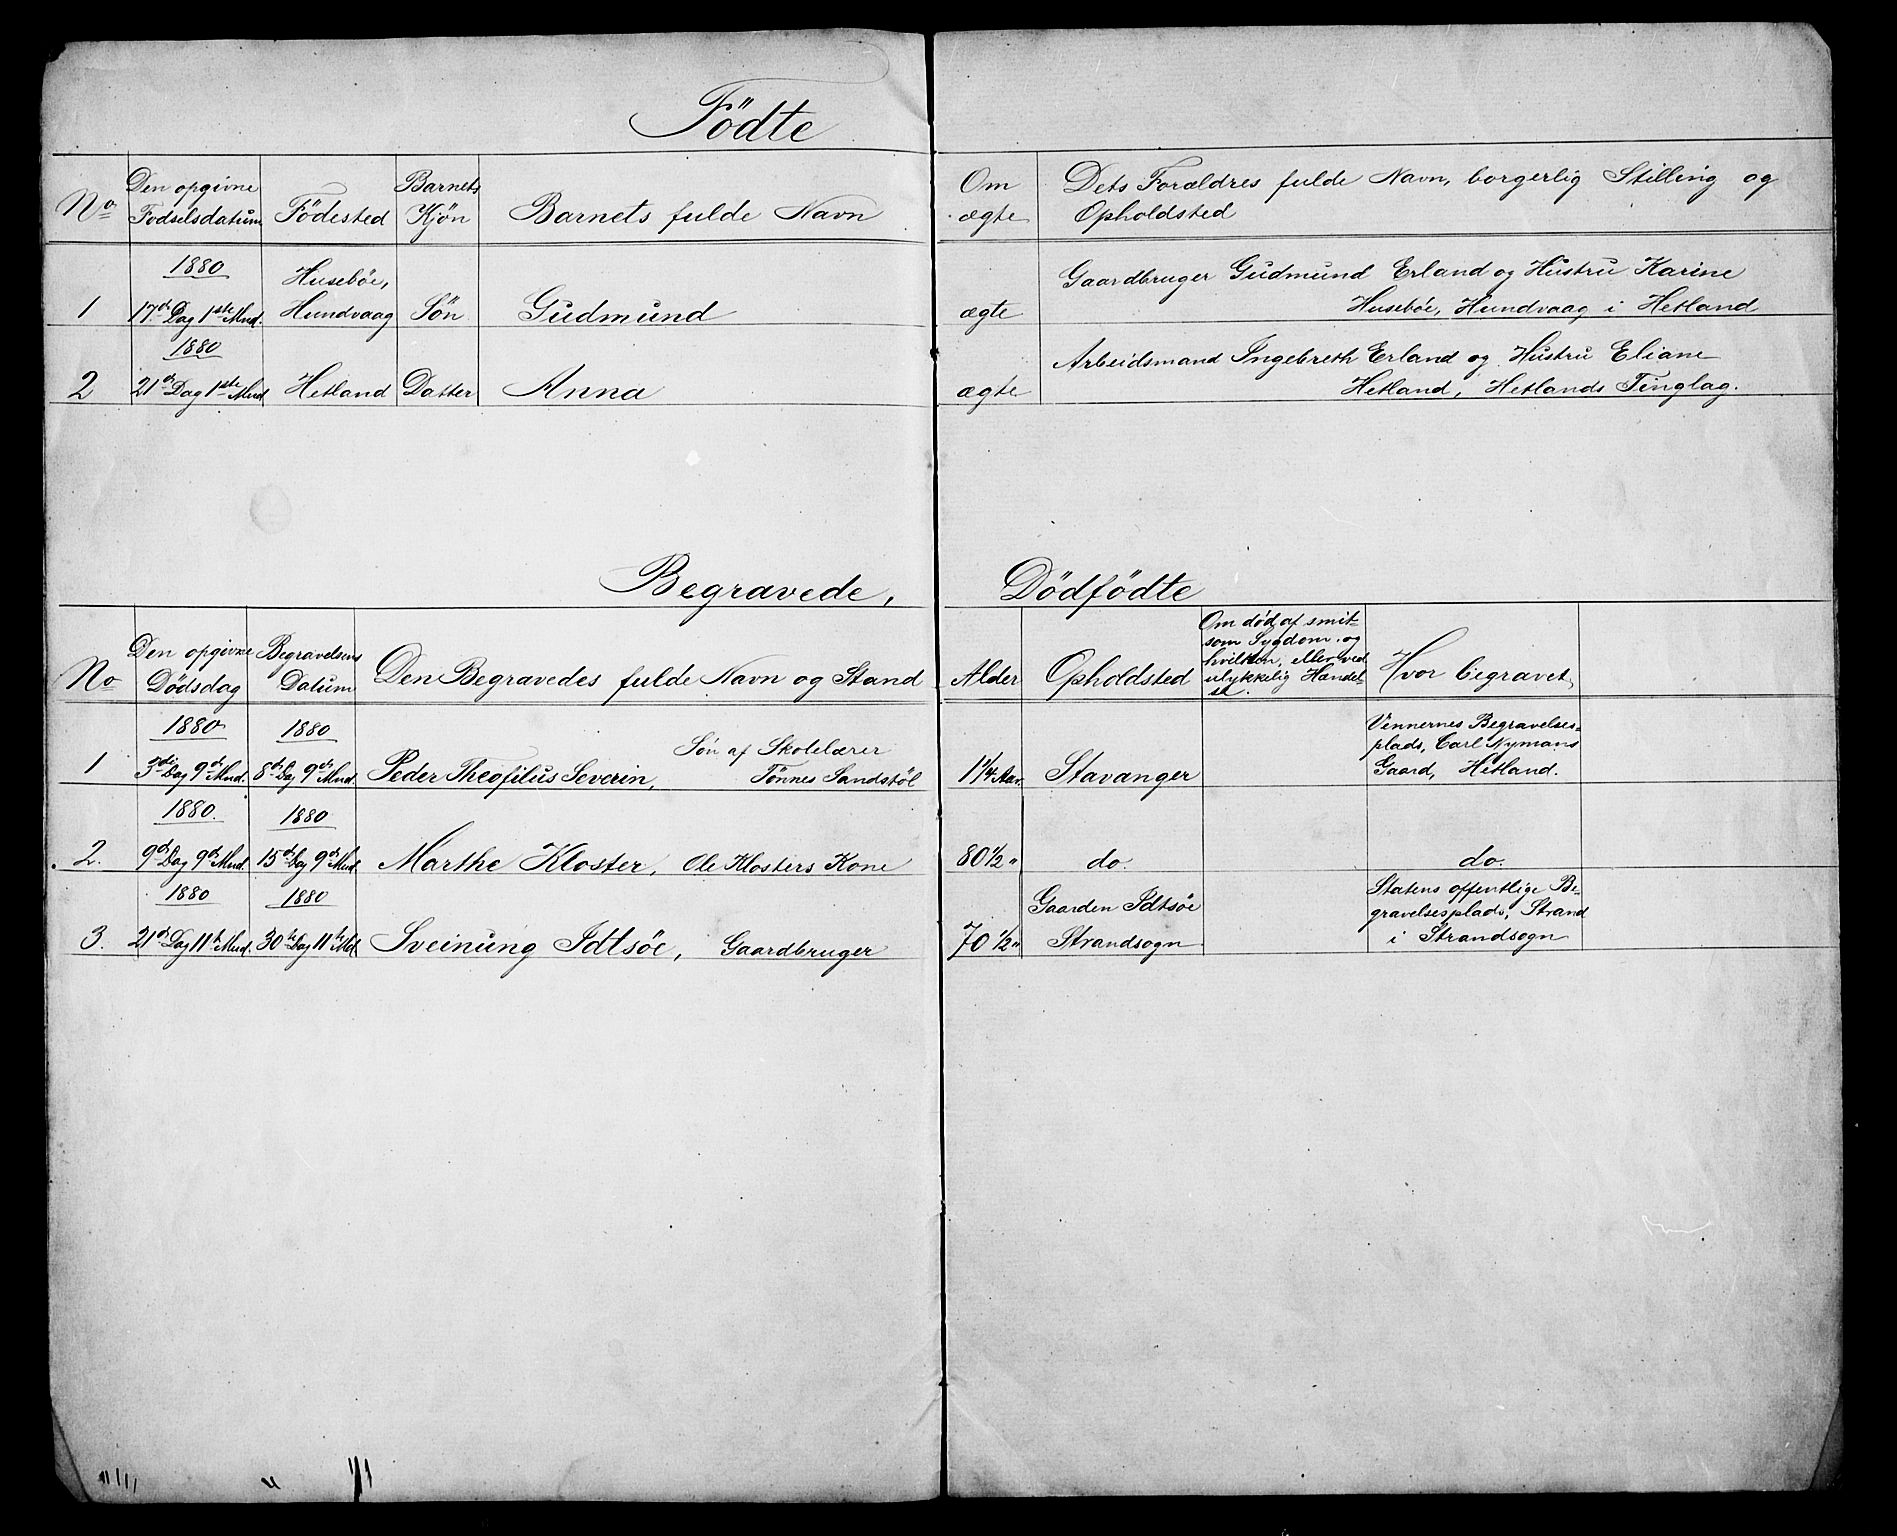 Födte
No
Den opgivne
Fodselsdatum
Födested
Barnets
Kjön
Barnets fulde Navn
Om
ægte
Dets Forældres fulde Navn, borgerlig Stilling og
Opholdsted
1
1880
17de Dag 1ste Mnd.
Husebôe,
Hundvaag
Sön
Gudmund
ægte
Gaardbruger Gudmund Erland og Hustru Karine
Husebôe, Hundvaag i Hetland
2
1880
21de Dag 1ste Mnd
Hetland
Datter
Anna
ægte
Arbeidsmand Ingebreth Erland og Hustru Eliane
Hetland, Hetlands Tinglag.
Begravede, Dödfödte
No
Den opgivne
Dödsdag
Begravelsens
Datum
Den Begravedes fulde Navn og Stand
Alder
Opholdsted
Om död af smit-
som Sygdom og
hvilken, eller ved
ulykkelig Hændel-
se.
Hvor begravet
1
1880
3die Dag 9de Mnd.
1880
8de Dag 9de Mnd.
Peder Theofilus Severin,
Sön af Skolelærer
Tönnes Sandstöl
1 1/4 Aar.
Stavanger
Vennernes Begravelses-
plads, Carl Nymans
Gaard, Hetland.
2.
1880.
9de Dag 9de Mnd.
1880
15de Dag 9de Mnd.
Marthe Kloster, Ole Klosters Kone
80 1/2 "
do.
do.
3.
1880
21de Dag 11te Mnd.
1880
30te Dag 11te Md.
Sveinung Idtsöe, Gaardbruger
70 1/2 "
Gaarden Idtsöe
Strandsogn
Statens offentlige Be-
gravelsesplads, Strand
i Strandsogn